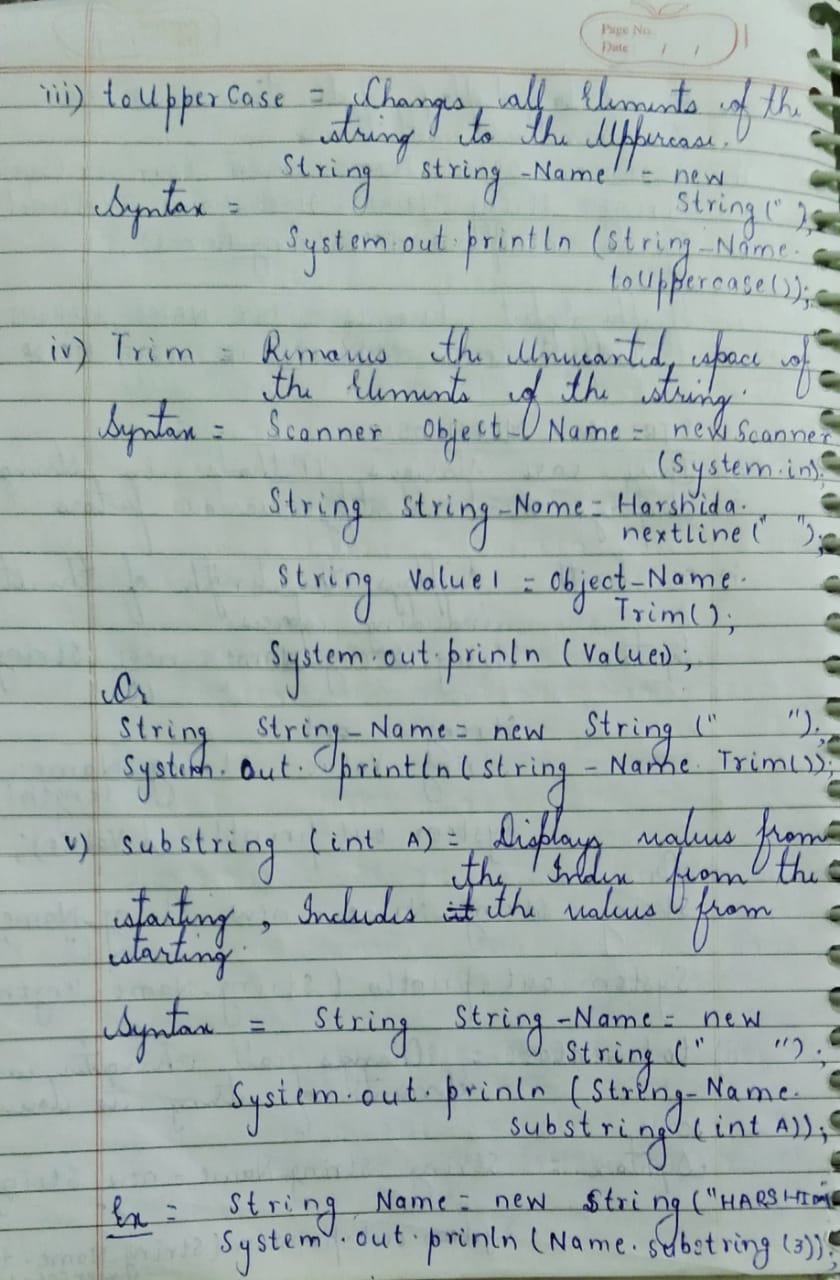 Page No.
Date / /
iii) toUpper Case = Changes all Elements of the
string to the Uppercase.
String string-Name = new
Syntax = String (" ),
System.out.println (String-Name.
toUppercase());
iv) Trim = Removes the Unwanted space of
the Elements of the string.
Syntax = Scanner Object-Name = new Scanner
(System.in);
String String-Name = Harshida.
nextline(" ");
String Value1 = Object-Name.
Trim();
System.out.prinln (Value1);
Or
String String-Name = new String (" ");
System.out.println(String-Name.Trim());
v) substring (int A) = Displays values from
the Index from the
starting, Includes the values from
starting.
Syntax = String String-Name = new
String (" ");
System.out.prinln (String-Name.
substring (int A));
Ex = String Name = new String ("HARSHIDA
System.out.prinln (Name.substring (3));